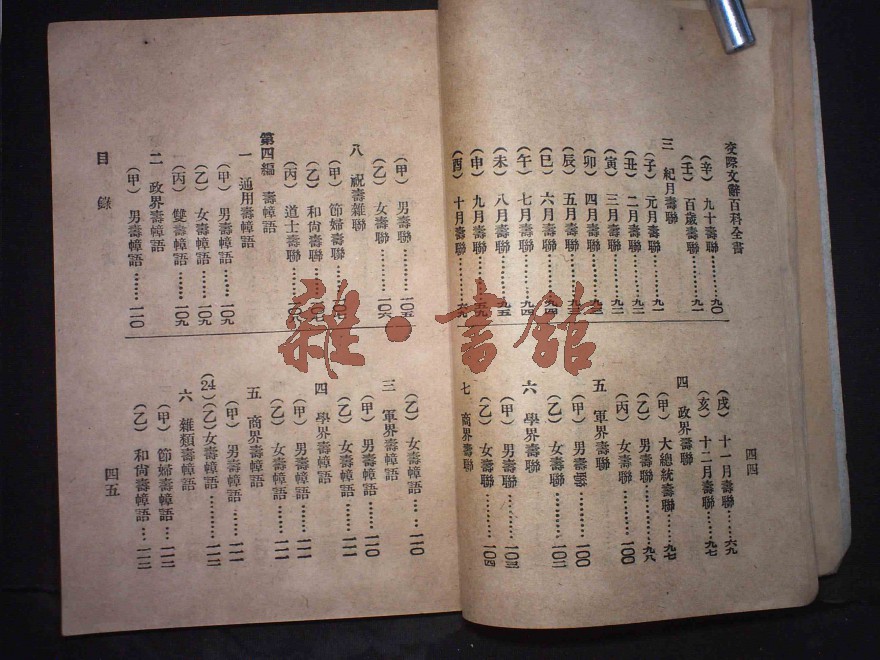 交際文辭百科全書
(辛) 九十壽聯………九〇
(壬) 百歲壽聯………九一
三 紀月壽聯
(子) 元月壽聯………九一
(丑) 二月壽聯………九二
(寅) 三月壽聯………九二
(卯) 四月壽聯………九三
(辰) 五月壽聯………九三
(巳) 六月壽聯………九四
(午) 七月壽聯………九四
(未) 八月壽聯………九五
(申) 九月壽聯………五九
(酉) 十月壽聯………
四四
(戌) 十一月壽聯………六九
(亥) 十二月壽聯………九七
四 政界壽聯
(甲) 大總統壽聯………九七
(乙) 男壽聯………九八
(丙) 女壽聯………一〇〇
五 軍界壽聯
(甲) 男壽聯………一〇〇
(乙) 女壽聯………一〇二
六 學界壽聯
(甲) 男壽聯………一〇三
(乙) 女壽聯………一〇四
七 商界壽聯
(甲) 男壽聯………一〇五
(乙) 女壽聯………一〇六
八 祝壽雜聯
(甲) 節婦壽聯………一〇七
(乙) 和尙壽聯………一〇七
(丙) 道士壽聯………一〇八
第四編 壽幛語
一 通用壽幛語
(甲) 男壽幛語………一〇九
(乙) 女壽幛語………一〇九
(丙) 雙壽幛語………一〇九
二 政界壽幛語
(甲) 男壽幛語………一一〇
目錄
(乙) 女壽幛語………一一〇
三 軍界壽幛語
(甲) 男壽幛語………一一〇
(乙) 女壽幛語………一一一
四 學界壽幛語
(甲) 男壽幛語………一一一
(乙) 女壽幛語………一一一
五 商界壽幛語
(甲) 男壽幛語………一一一
(24)(乙) 女壽幛語………一一二
六 雜類壽幛語
(甲) 節婦壽幛語………一一二
(乙) 和尙壽幛語………一一二
四五
雜·書館